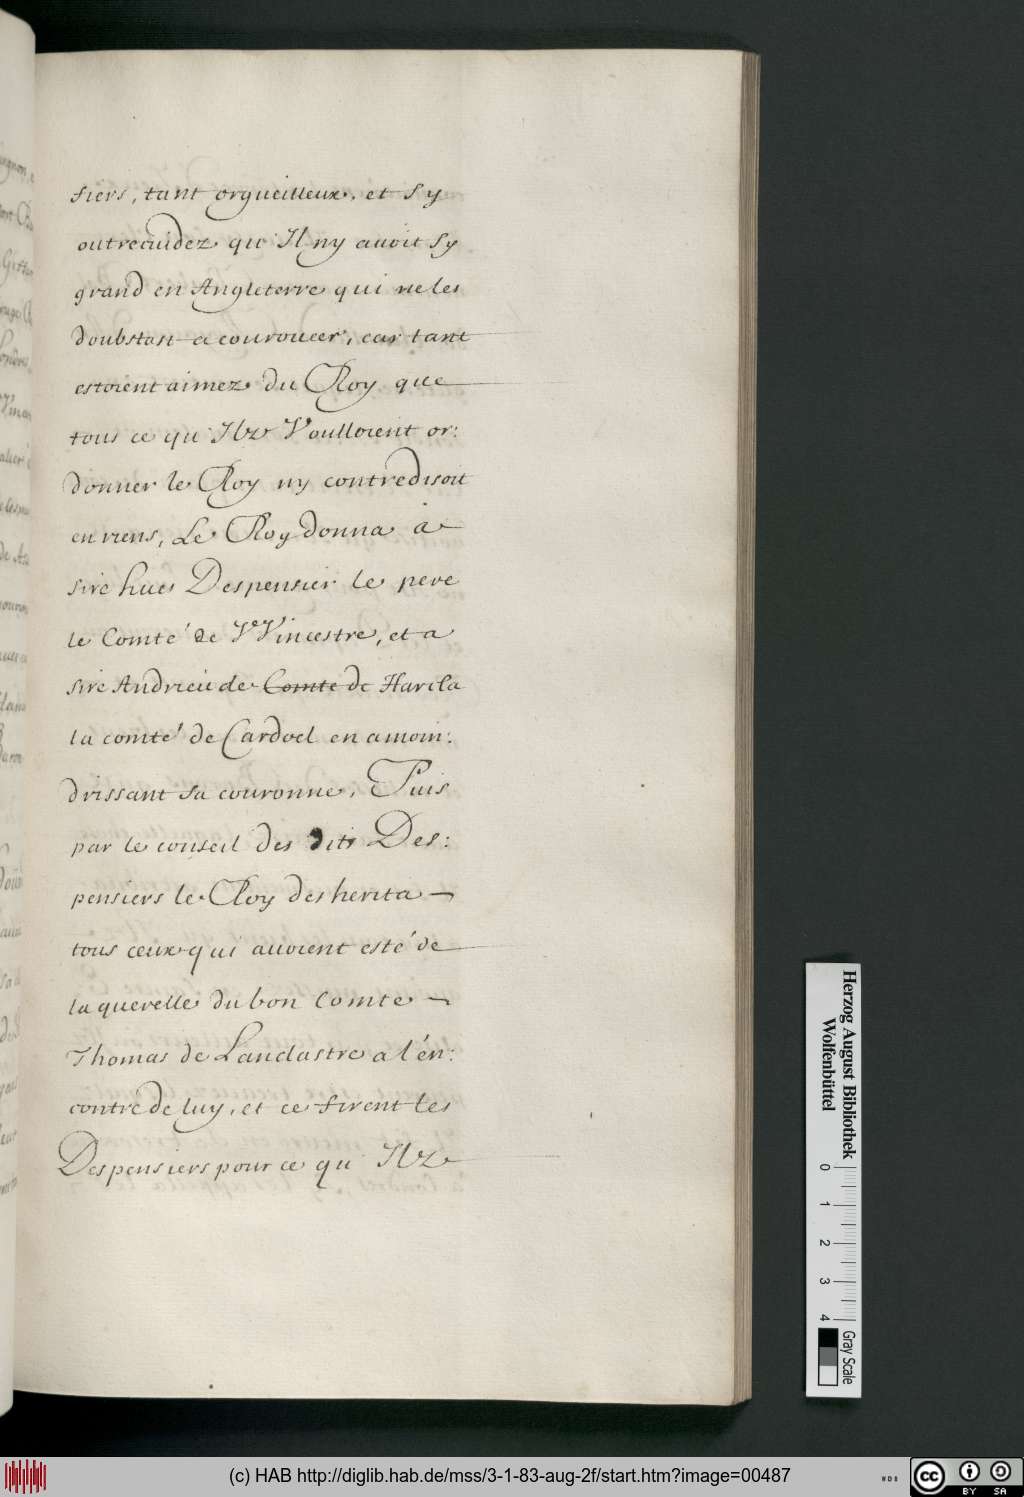 fiers, tant orgueilleux, et sy
outrecuidez qu'Il ny avoit sy
grand en Angleterre qui ne les
doubstast a couroucer, car tant
estoient aimez du Roy que
tous ce qu'Ilz Voulloient or:
donner le Roy ny contredisoit
en riens, Le Roy donna a
sire hues Despensier le pere
le Comté de VVincestre, et a
sire Andrieu de Comte de Harcla
la comté de Cardoel en amoin:
drissant sa couronne. Puis
par le conseil des dits Des:
pensiers le Roy desherita
tous ceux qui avoient esté de
la querelle du bon Comte
Thomas de Lanclastre a l'én:
contre de luy, et ce firent les
Despensiers pour ce qu'Ilz
Herzog August Bibliothek
Wolfenbüttel
0 1 2 3 4
Gray Scale
(c) HAB http://diglib.hab.de/mss/3-1-83-aug-2f/start.htm?image=00487
WDB
cc BY SA